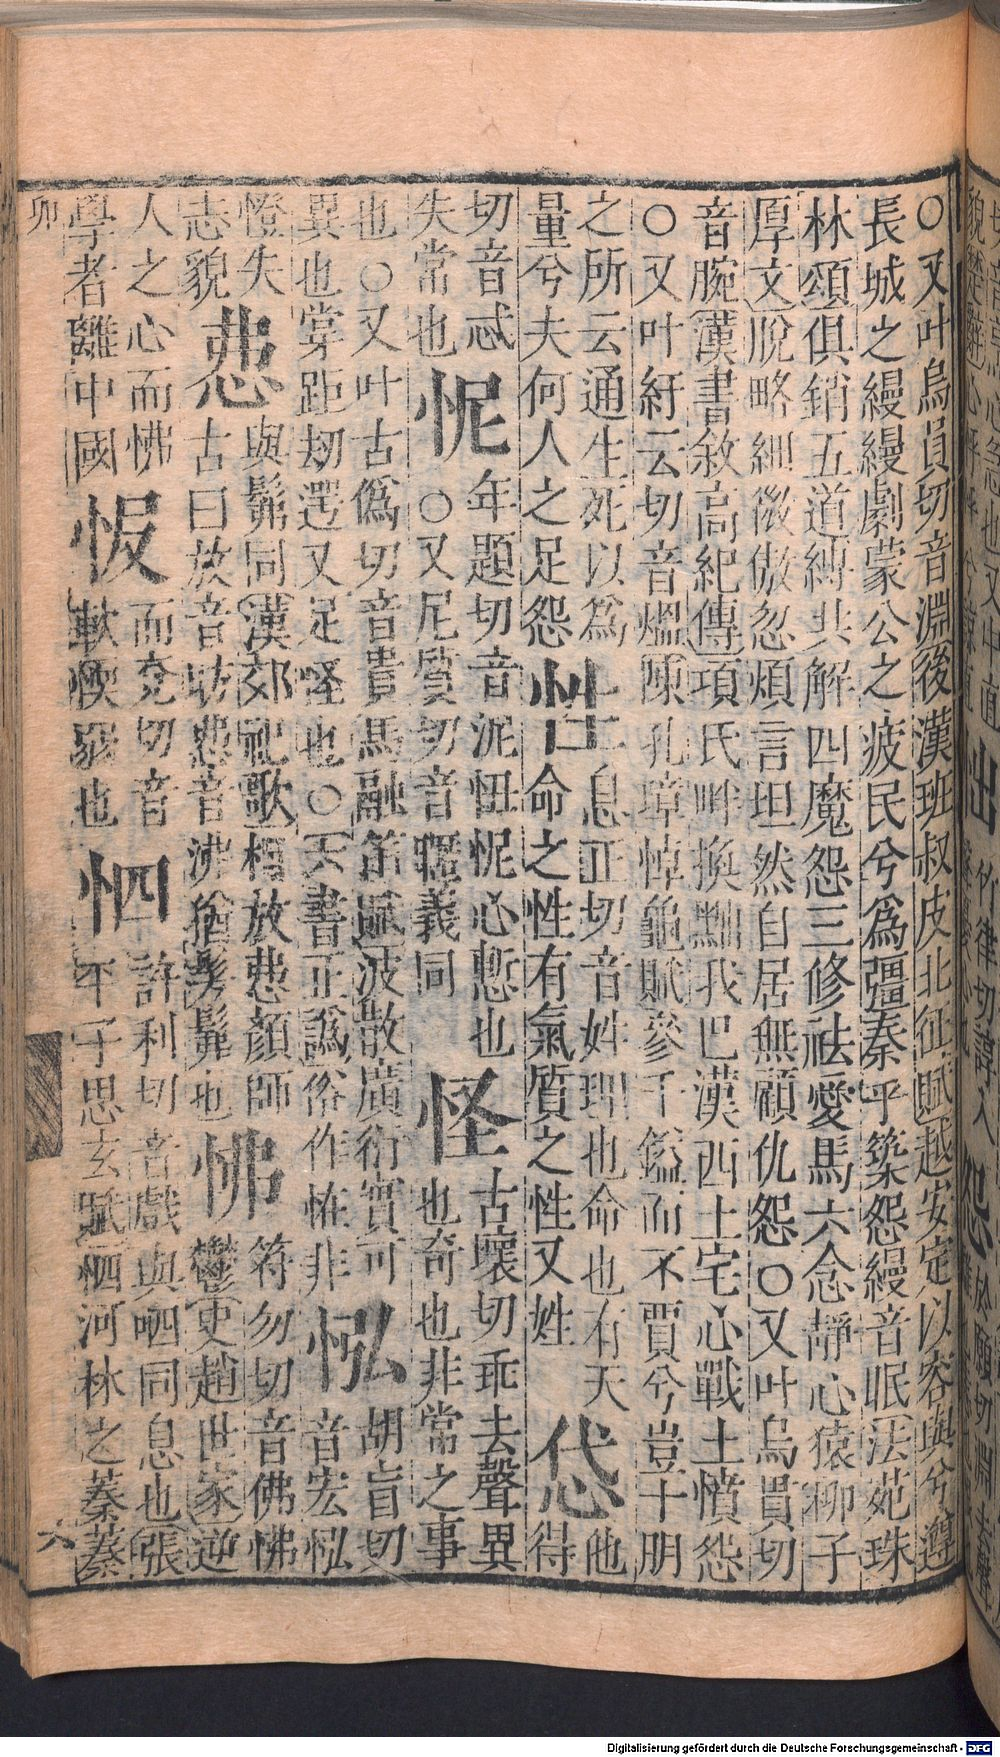 ○又叶烏員切音淵後漢班叔皮北征賦越安定以容與兮遵
長城之縵縵劇蒙公之疲民兮爲彊秦乎築怨縵音眠法苑珠
林頌俱銷五道縛共解四魔怨三修祛愛馬六念靜心猿柳子
厚文脫略細微傲忽煩言坦然自居無顧仇怨○又叶烏貫切
音腕漢書敘高紀傳項氏畔換黜我巴漢西土宅心戰士憤怨
○又叶紆云切音熅陳孔璋悼龜賦參千鎰而不賈兮豈十朋
之所云通生死以爲
量兮夫何人之足怨
性
息正切音姓理也命也有天
命之性有氣質之性又姓
忒
他
得
切音忒
失常也
怩
年題切音泥忸怩心慙也
○又尼質切音暱義同
怪
古壞切乖去聲異
也奇也非常之事
也○又叶古僞切音貴馬融笛賦波散廣衍實可
異也掌距劫遌又足怪也○六書正譌俗作恠非
怰
胡盲切
音宏怰
憕失
志貌
恖
與髴同漢郊祀歌相放恖顏師
古曰放音昉恖音沸猶髣髴也
怫
符勿切音佛怫
鬱吏趙世家逆
人之心而怫
學者離中國
㤆
而兗切音
軟愞弱也
怬
許利切音戲與呬同息也張
平子思玄賦怬河林之蓁蓁
卯
六
Digitalisierung gefördert durch die Deutsche Forschungsgemeinschaft - DFG